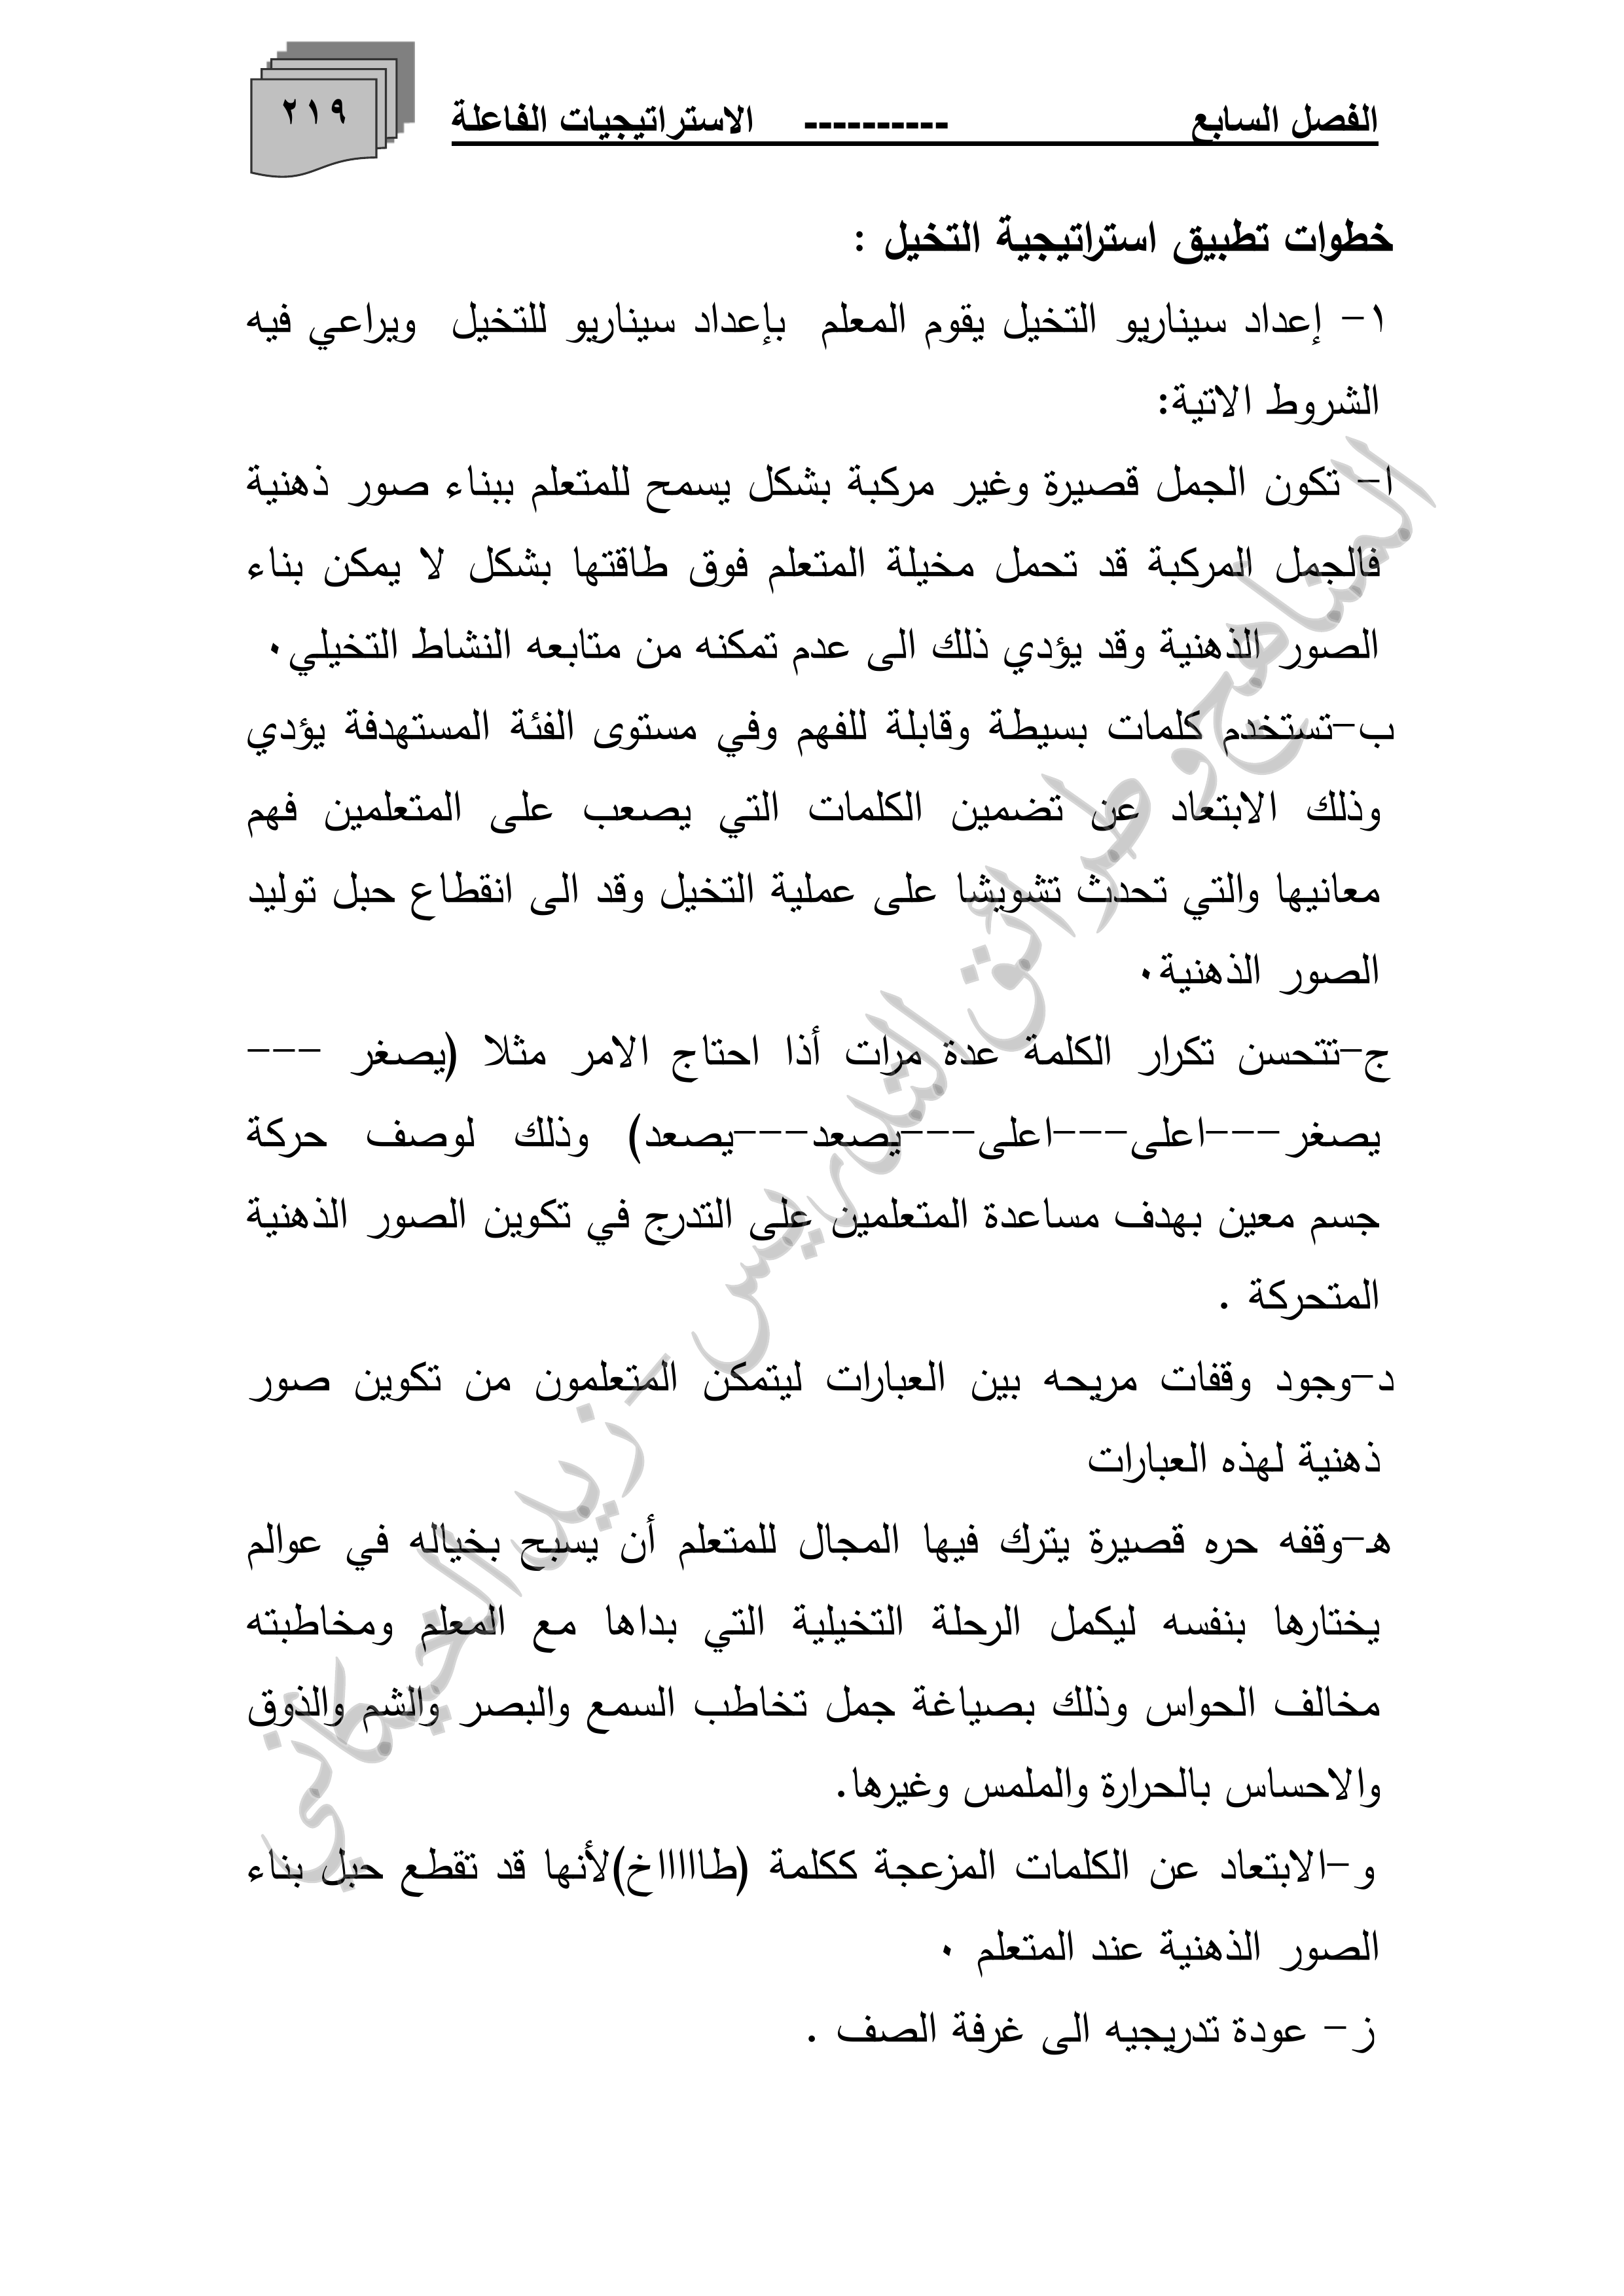 الفصل السابع ---------- الاستراتيجيات الفاعلة
٢١٩
خطوات تطبيق استراتيجية التخيل :
١- إعداد سيناريو التخيل يقوم المعلم بإعداد سيناريو للتخيل ويراعي فيه
الشروط الاتية:
ا- تكون الجمل قصيرة وغير مركبة بشكل يسمح للمتعلم ببناء صور ذهنية
فالجمل المركبة قد تحمل مخيلة المتعلم فوق طاقتها بشكل لا يمكن بناء
الصور الذهنية وقد يؤدي ذلك الى عدم تمكنه من متابعه النشاط التخيلي٠
ب-تستخدم كلمات بسيطة وقابلة للفهم وفي مستوى الفئة المستهدفة يؤدي
وذلك الابتعاد عن تضمين الكلمات التي يصعب على المتعلمين فهم
معانيها والتي تحدث تشويشا على عملية التخيل وقد الى انقطاع حبل توليد
الصور الذهنية٠
ج-تتحسن تكرار الكلمة عدة مرات أذا احتاج الامر مثلا (يصغر ---
يصغر---اعلى---اعلى---يصعد---يصعد) وذلك لوصف حركة
جسم معين بهدف مساعدة المتعلمين على التدرج في تكوين الصور الذهنية
المتحركة .
د-وجود وقفات مريحه بين العبارات ليتمكن المتعلمون من تكوين صور
ذهنية لهذه العبارات
هـ-وقفه حره قصيرة يترك فيها المجال للمتعلم أن يسبح بخياله في عوالم
يختارها بنفسه ليكمل الرحلة التخيلية التي بداها مع المعلم ومخاطبته
مخالف الحواس وذلك بصياغة جمل تخاطب السمع والبصر والشم والذوق
والاحساس بالحرارة والملمس وغيرها.
و-الابتعاد عن الكلمات المزعجة ككلمة (طااااااخ)لأنها قد تقطع حبل بناء
الصور الذهنية عند المتعلم ٠
ز- عودة تدريجيه الى غرفة الصف .
المناهج و طرائق التدريس - زيد الخيكاني